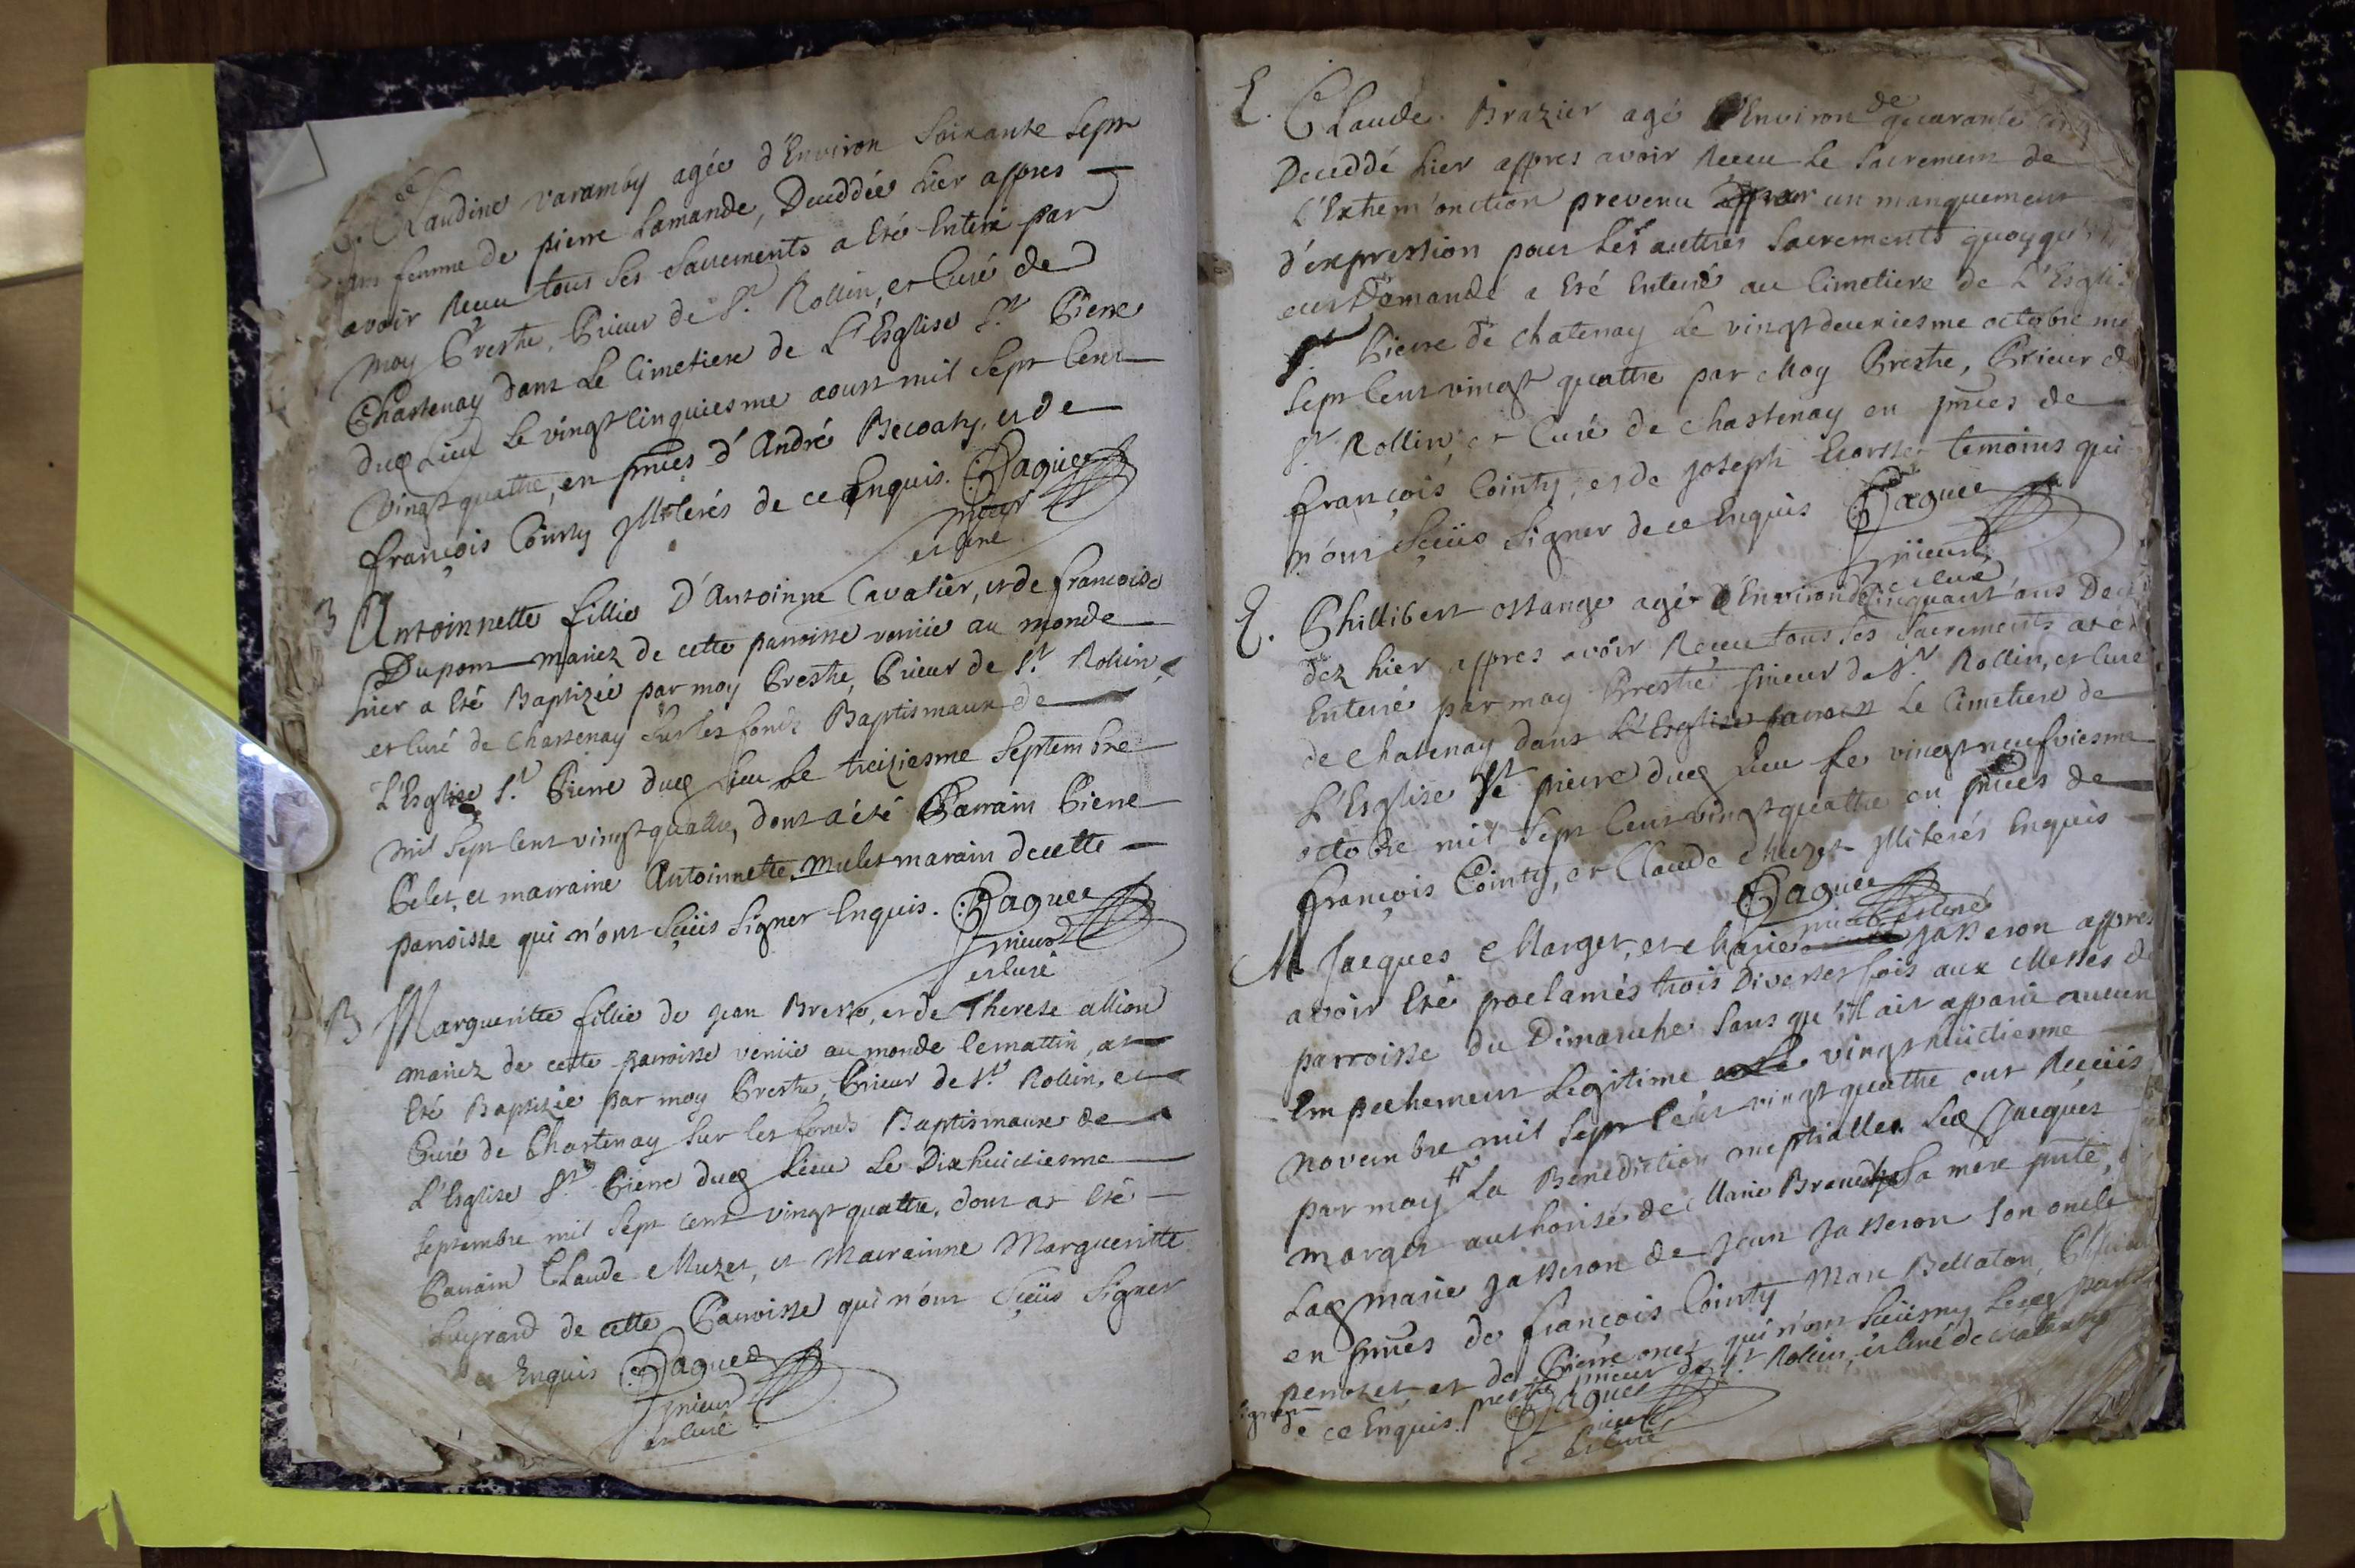 E. Claudine varamby agée d'Environ Soixante Sept
ans femme de pierre Lamande, Deceddée hier appres
avoir Receu tous Ses Sacrements a Eté Enteré par
moy Prestre, Prieur de St. Rollin, et Curé de
Chastenay dans Le Cimetiere de L'Eglise St. Pierre
dud Lieu Le vingt Cinquiesme aoust mil Sept Cent
vingt quattre, en pnces d'André et de
françois Cointy Illiterés de ce Enquis. Paquee
prieur
et Curé
B Antoinnette fillie D'Antoinne Cavalier, et de francoise
Dupont mariez de cette parroisse venüe au monde
hier a Eté Baptizée par moy Prestre, Prieur de St. Rollin,
et Curé de Chastenay Sur les fonds Baptismaux de
L'Esglise St. Pierre dud Lieu Le treiziesme Septembre
mil Sept Cent vingt quattre, dont a été Parrain Pierre
Pelet, et marraine Antoinnette Mulet marain de cette
parroisse qui n'ont Sçeüs Signer Enquis. Paquee
prieur
et Curé
B Margueritte fillie de Jean Bresse, et de Therese allion
mariez de cette parroisse venüe au monde le mattin, at
Eté Baptizée par moy Prestre, Prieur de St. Rollin, et
Curé de Chastenay Sur les fonds Baptismaux de
L'Eglise St. Pierre dud Lieu Le Dixhuictiesme
Septembre mil Sept cent vingt quattre, dont at Eté
Parrain Claude Muzet, et Marrainne Margueritte
de cette Parroisse qui n'ont Sçeüs Signer
Enquis Paquee
prieur
et Curé
E. Claude Brazier agé d'Environ de quarante Cinq
Deceddé hier appres avoir Receu Le Sacrement de
L'Extrem'onction prevenu par un manquement
d'expression pour Les autres Sacrements quoyqu'il
eust Demandé a Eté Enterré au Cimetiere de L'Eglise
St Pierre de Chatenay Le vingt deuxiesme octobre mil
Sept Cent vingt quattre par Moy Prestre, Prieur de
St. Rollin, et Curé de Chastenay en pnces de
françois Cointy, et de Joseph temoins qui
n'ont Sçeüs Signer de ce Enquis Paquee
prieur
et Curé
E. Phillibert ostange agé d'Environ de Cinquant'ans Deced
dez hier appres avoir Receu tous Ses Sacrements a eté
Enterré par moy Prestre prieur de St. Rollin, et Curé
de Chatenay dans Le Cimetiere de
L'Esglise St pierre dud Lieu Le vingt neufviesme
octobre mil Sept Cent vingt quattre en pnces de
françois Cointy, et Claude Muzet Illiterés Enquis
Paquee
prieur et Curé
M Jacques Marget, et Marie Jasseron appres
avoir Eté proclamés trois Diverses fois aux Messes de
parroisse du Dimanche Sans qu'il ait apparu aucun
Empechement Legitime Le vingt huictiesme
Novembre mil Sept Cent vingt quattre ont Receüs
par moy # La Benediction nuptialle. Led Jacques
marget authorisé de Marie Sa mere pnte,
Lad marie Jasseron de Jean Jasseron Son oncle
en pnces de françois Cointy Marc Bellaton,
perrozet et de Pierre qui n'ont Sceüs ny Lesd parties
signer de ce Enquis. # prestre prieur de St. Rollin, et Curé de Chatenay
Paquee
prieur
et Curé